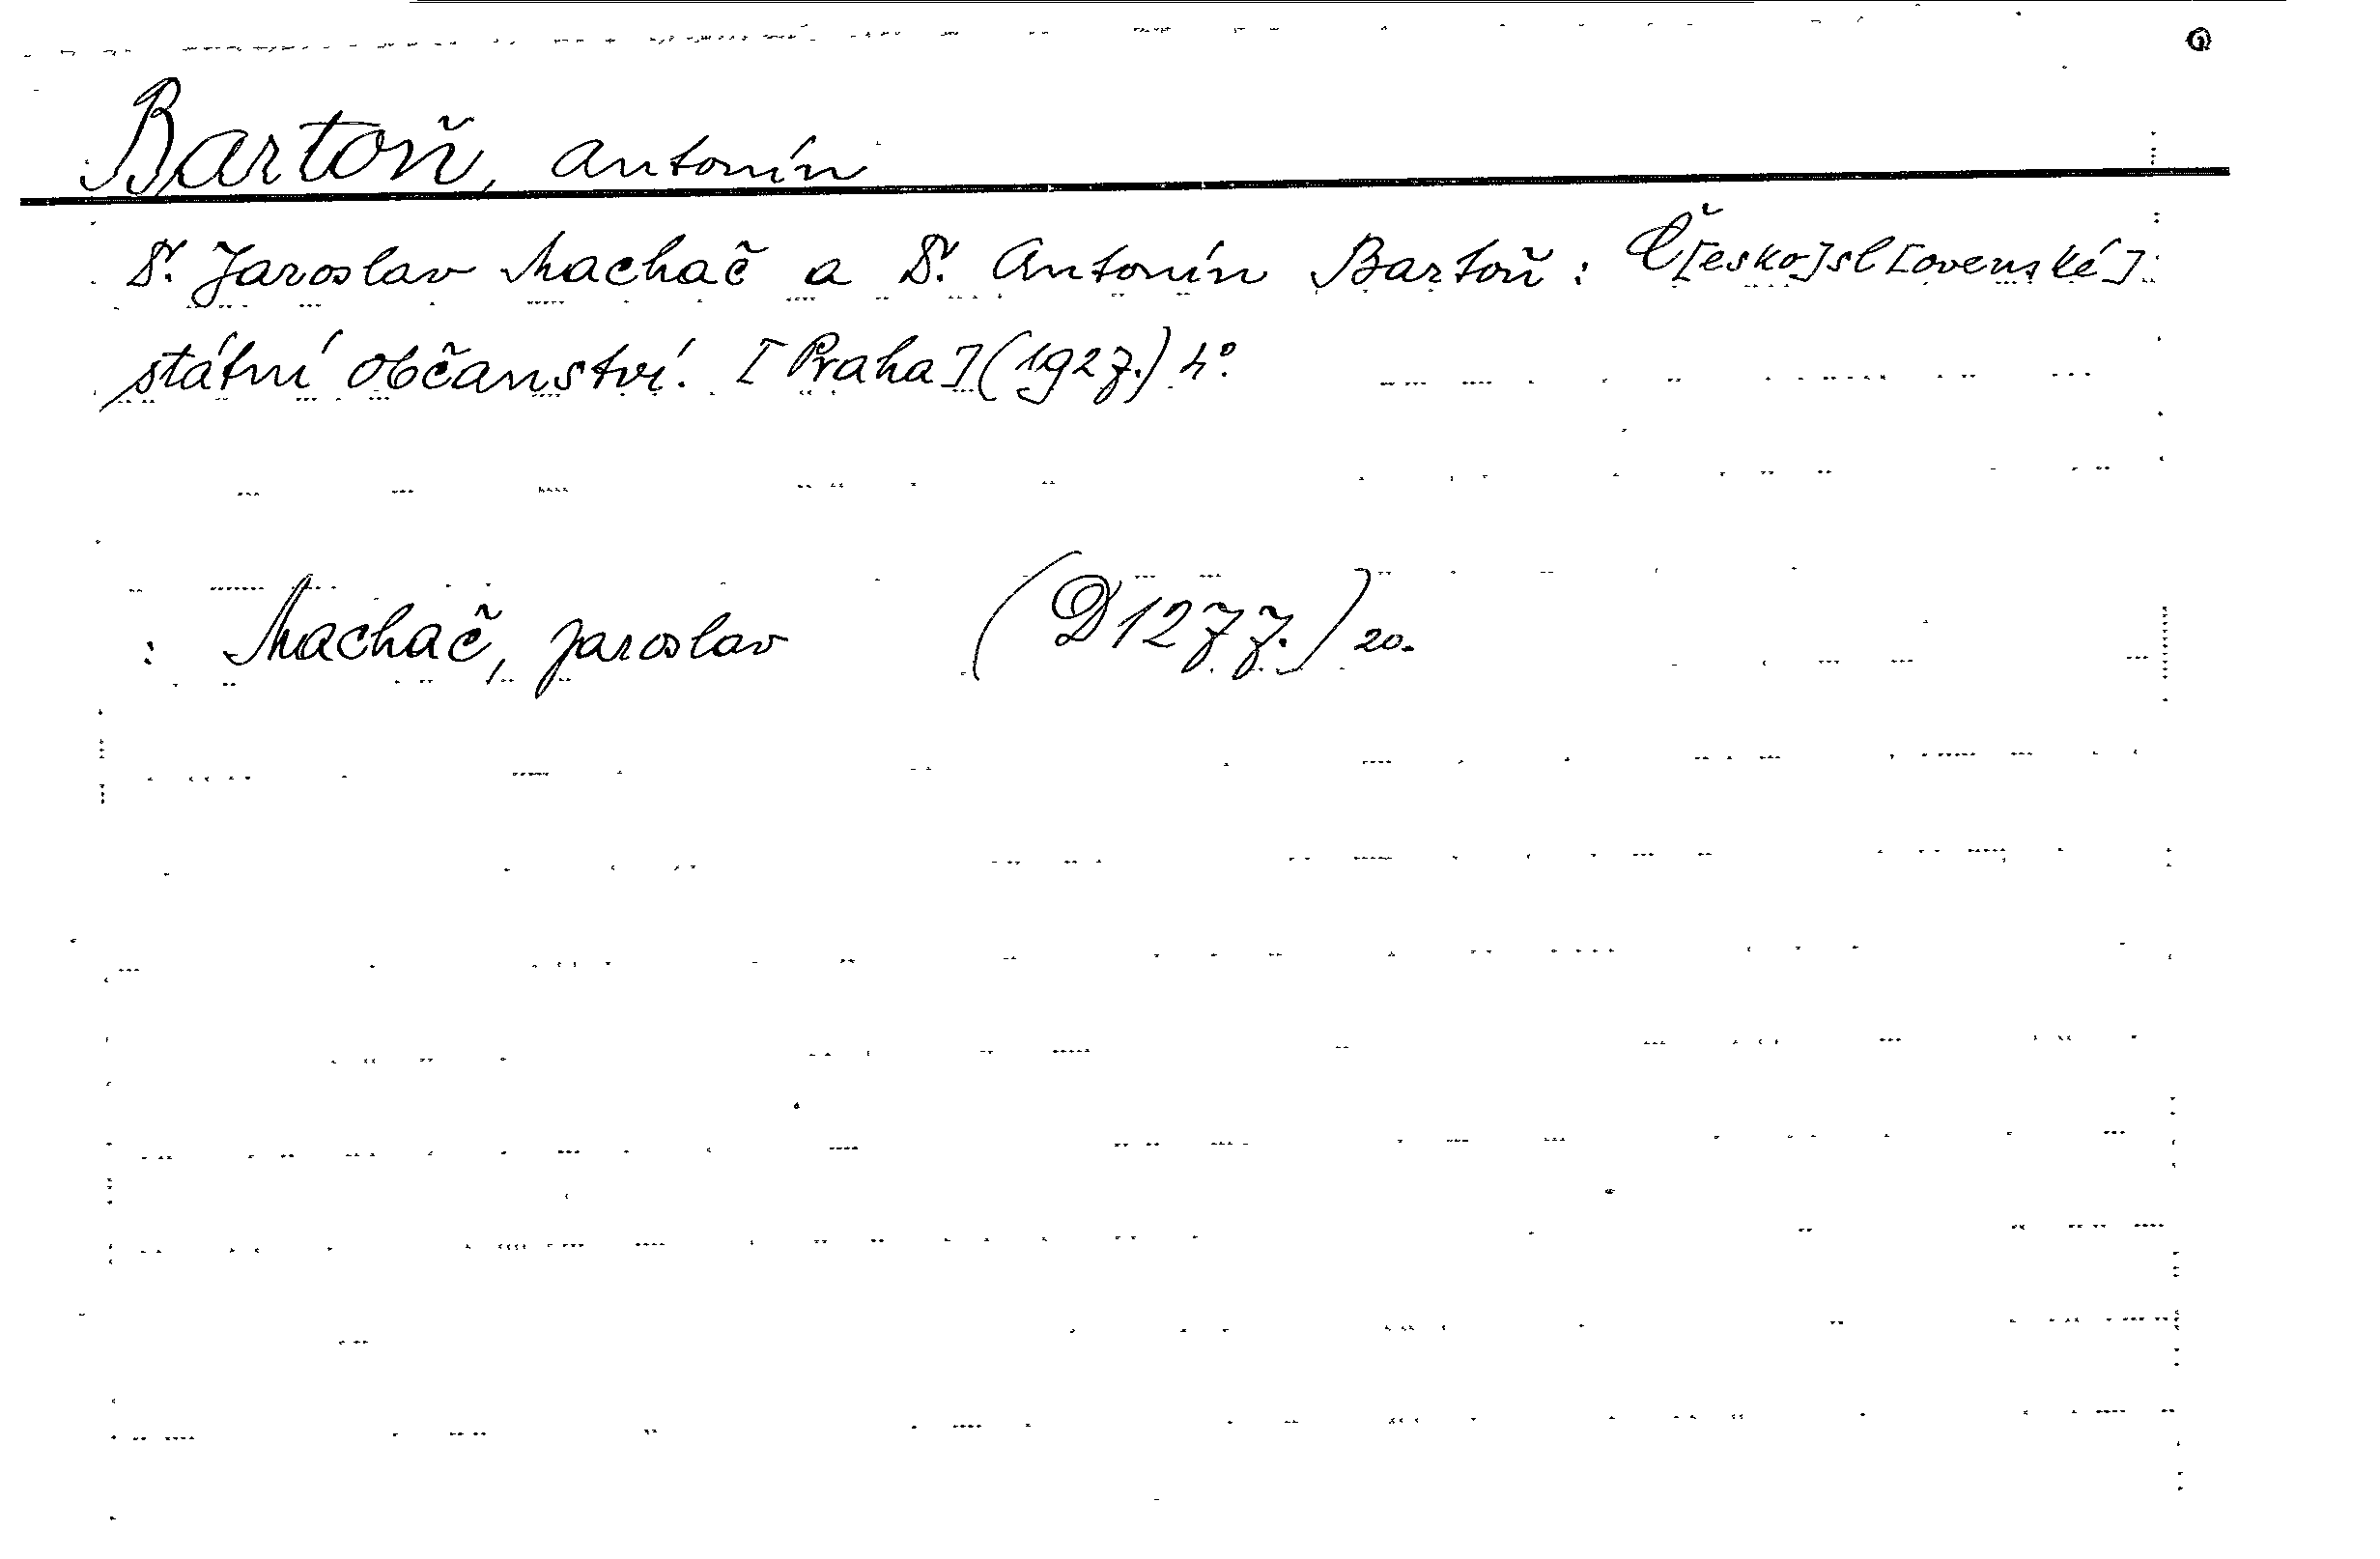 Bartoň, Antonín
Dr. Jaroslav Machač a Dr. Antonín Bartoň: Č[esko]sl[ovenské]
státní občanství. [Praha] (1927.) 4°.
: Machač, Jaroslav (D 1277.) 20.